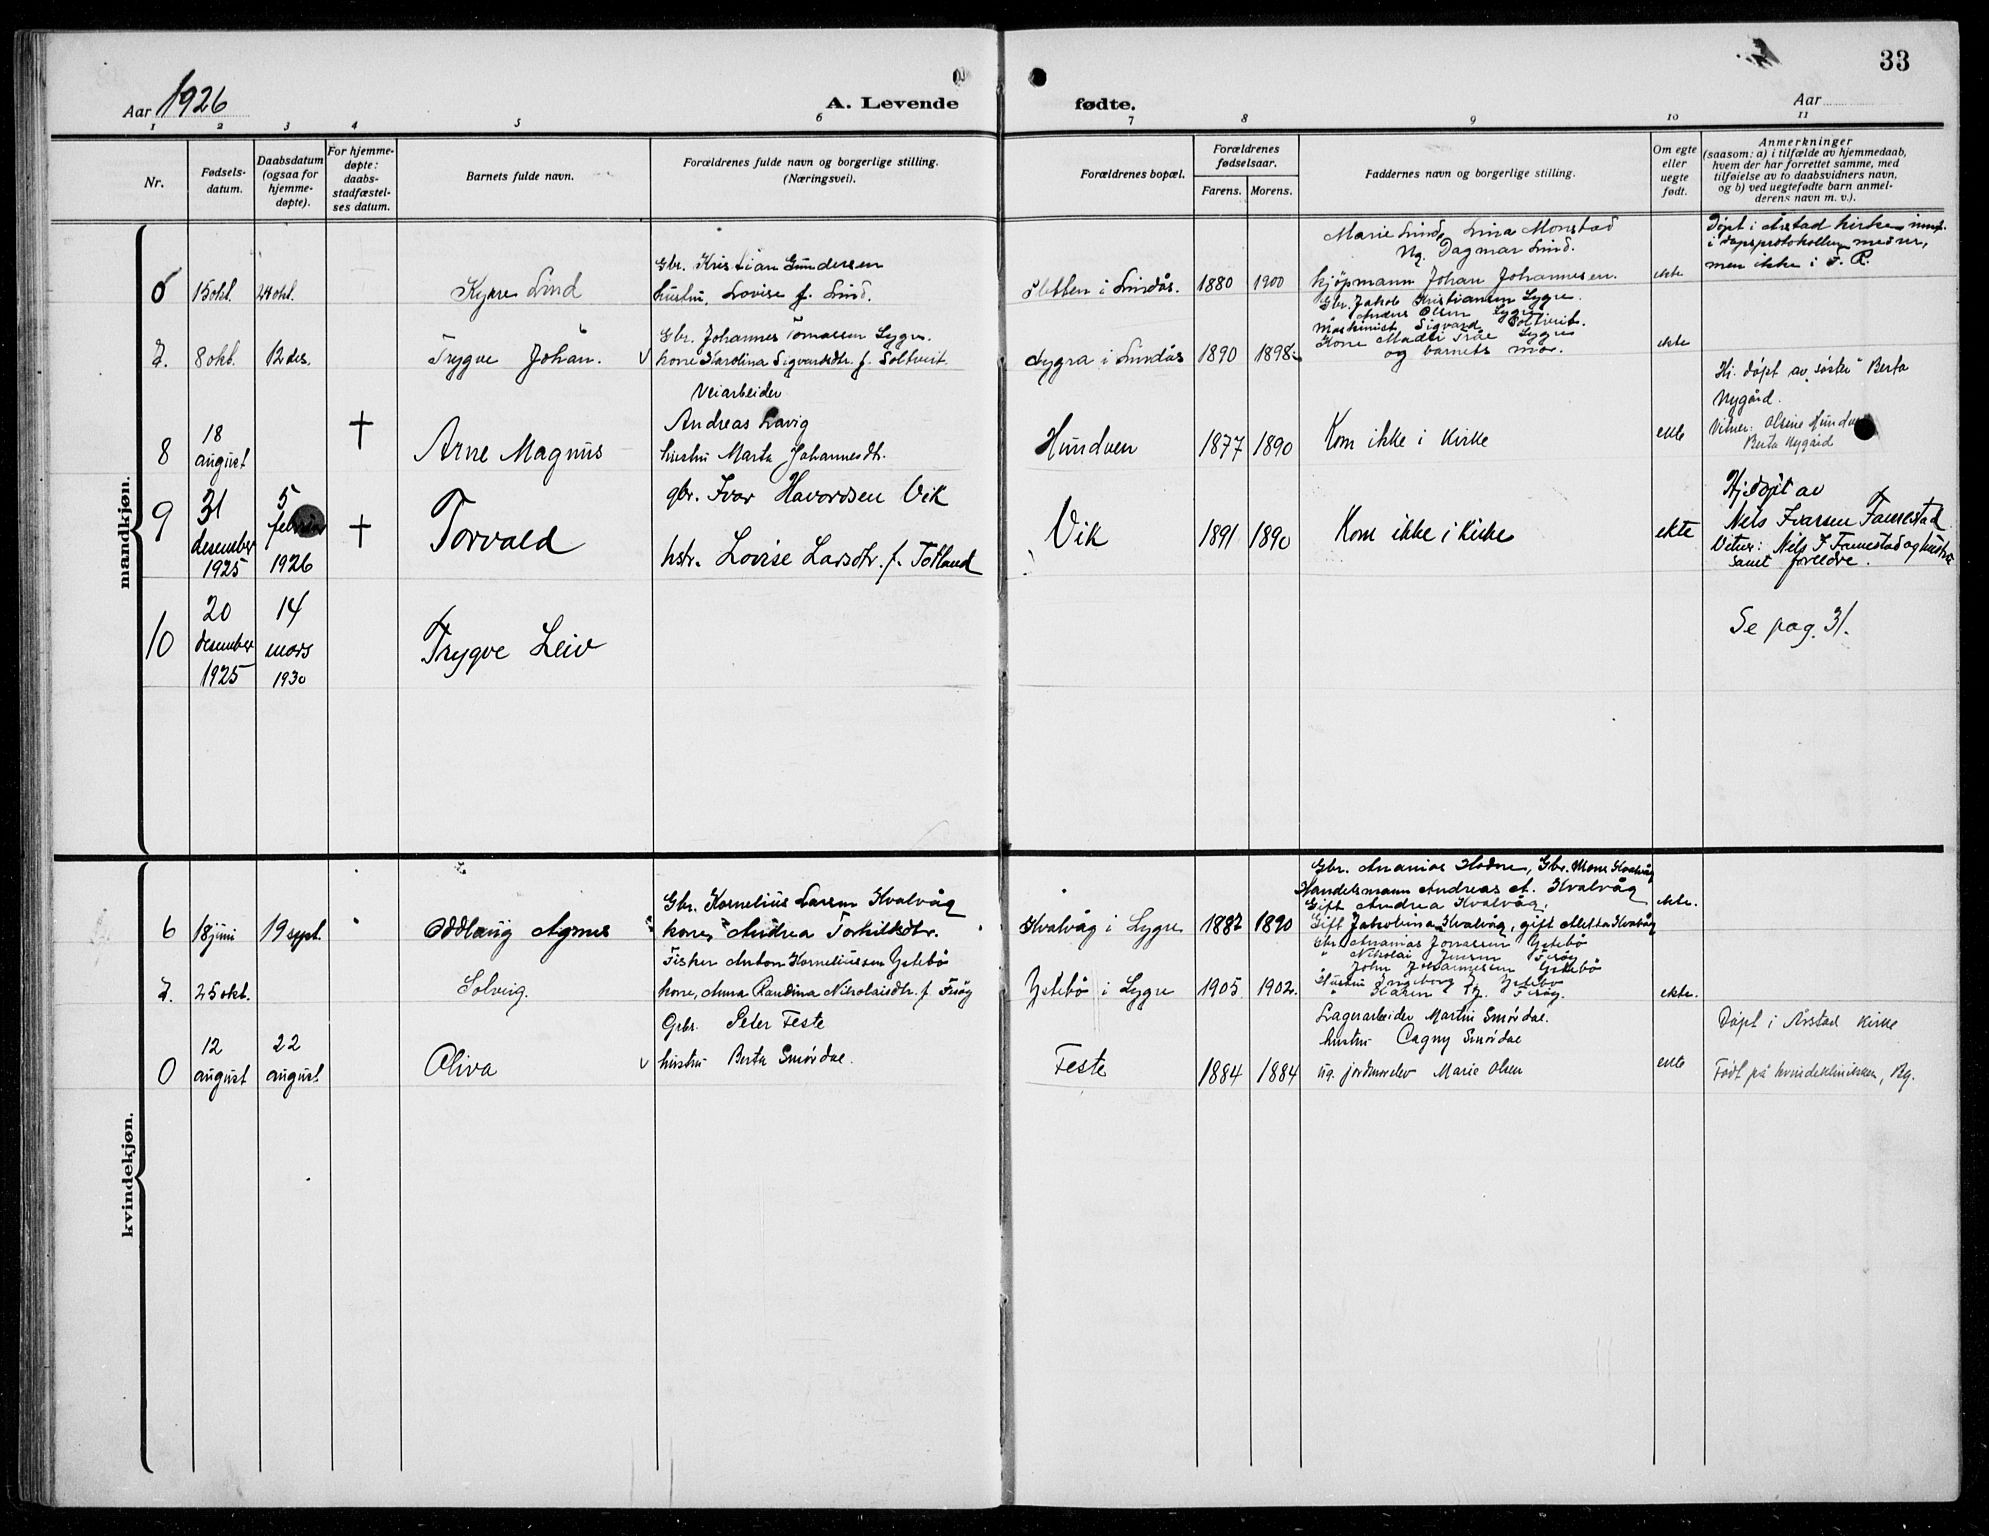 33
Aar 1926
A. Levende fødte.
Aar
1 2 3 4 5 6 7 8 9 10 11
Nr.
Fødsels-
datum.
Daabsdatum
(ogsaa for
hjemme-
døpte).
For hjemme-
døpte:
daabs-
stadfæstel-
ses datum.
Barnets fulde navn.
Forældrenes fulde navn og borgerlige stilling.
(Næringsvei).
Forældrenes bopæl.
Forældrenes
fødselsaar.
Farens. Morens.
Faddernes navn og borgerlige stilling.
Om egte
eller
uegte
født.
Anmerkninger
(saasom: a) i tilfælde av hjemmedaab,
hvem der har forrettet samme, med
tilføielse av to daabsvidners navn,
og b) ved uegtefødte barn anmel-
derens navn m. v.).
mandkjøn.
6 15 okt. 24 okt. Lind
Gbr. Kristian Gundersen
hustru Lovise f. Lind.
Sletten i Lindås. 1880 1900
Marie Lind, Lina Monstad
Ug. Dagmar Lind.
kjøpmann Johan Johannesen.
ekte
Døpt i Årstad kirke
i dåpsprotokollen med nr,
men ikke i F. R.
7. 8 okt. 12 des. Trygve Johan.
Gbr. Johannes Tomassen Lygre.
kone Karolina Sigvardsdtr. f. Soltveit
Lygra i Lindås 1890 1898
Gbr. Jakob Kristiansen Lygre.
Anders Olsen Lygre
Maskinist Sigvard Soltveit.
Kone Lygre
og barnets mor.
ekte
8 18 august † Arne Magnus
Veiarbeider
Andreas Lavig
hustru Marta Johannesdtr.
Hundven 1877 1890 Kom ikke i kirke ekte
Hj. døpt av søster Berta
Nygård.
Vitner: Olsine
Berta Nygård
9 31 desember 1925 5 februar 1926 † Torvald
gbr. Ivar Havordsen Vik
hstr. Lovise Larsdtr. f. Totland
Vik 1891 1890 Kom ikke i kirke ekte
Hj. døpt av
Nels Ivarsen Fammestad
Vitner: Nils I Fammestad og hustru
samt foreldre.
10 20 desember 1925 14 mars 1930 Trygve Leiv
Se pag. 31.
kvindekjøn.
6 18 juni 19 sept. Oddlaug Agnes
Gbr. Kornelius Larsen Kvalvåg
kone Andrea Torkildsdtr.
Kvalvåg i Lygre 1882 1890
Gbr. Ananias Hodne, Gbr. Mons Kvalvåg
Handelsmann Andreas A. Kvalvåg
Gift Andrea Kvalvåg.
Gift Jakobina Kvalvåg, gift Aletta Kvalvåg
ekte.
7. 25 okt. Solveig.
Fisker Anton Korneliussen Ystebø
kone, Anna Randina Nikolaisdtr. f. Fosøy
Ystebø i Lygre 1905 1902.
Gbr. Ananias Jonassen Ystebø
" Nikolai Jensen Fosøy
John Johannessen Ystebø
Hustru Ingeborg J. Ystebø
" Karen Fosøy.
ekte.
0 12 august 22 august Oliva
Gbr. Peter Feste
hustru Berta Smørdal.
Feste 1884 1884
Lagerarbeider Martin Smørdal.
hustru Cagny Smørdal
ug. jordmorelev Marie Olsen
ekte
Døpt i Årstad kirke
Født på kvindeklinikken, Bg.